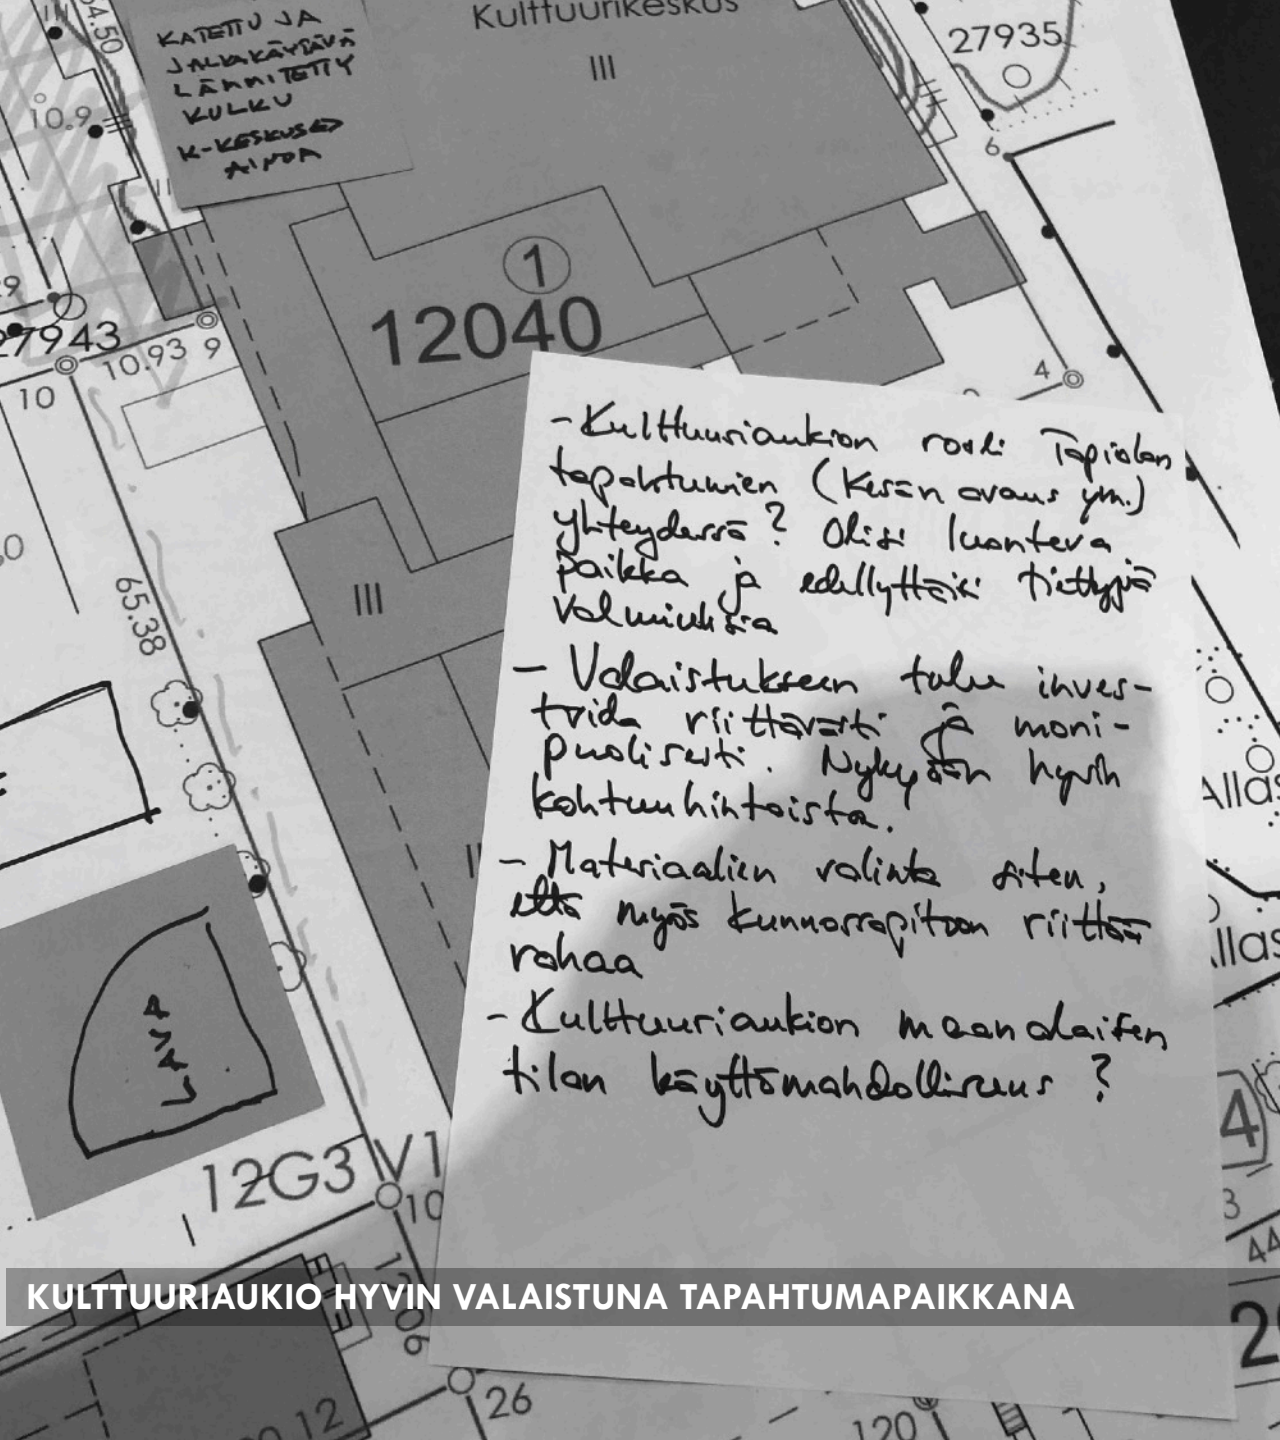 Kulttuurikeskus
III
KATETTU JA
JALKAKÄYTÄVÄ
LÄMMITETTY
KULKU
K-KESKUS
AINOA
54.50
10.9
27935
6
1
12040
27943
10.93 9
10
4
65.38
III
- Kulttuuriaukion rooli Tapiolan
tapahtumien (Kesän avaus ym.)
yhteydessä? Olisi luonteva
paikka ja edellyttäisi tiettyjä
valmiuksia
- Valaistukseen tulee inves-
toida riittävästi ja moni-
puolisesti. Nykypään hyvin
kohtuuhintaista.
- Materiaalien valinta siten,
että myös kunnossapitoon riittää
rahaa
- Kulttuuriaukion maanalaisen
tilan käyttömahdollisuus?
Allas
Allas
LAVA
12G3 V1
10
4
3
44
KULTTUURIAUKIO HYVIN VALAISTUNA TAPAHTUMAPAIKKANA
1206
26
12
120